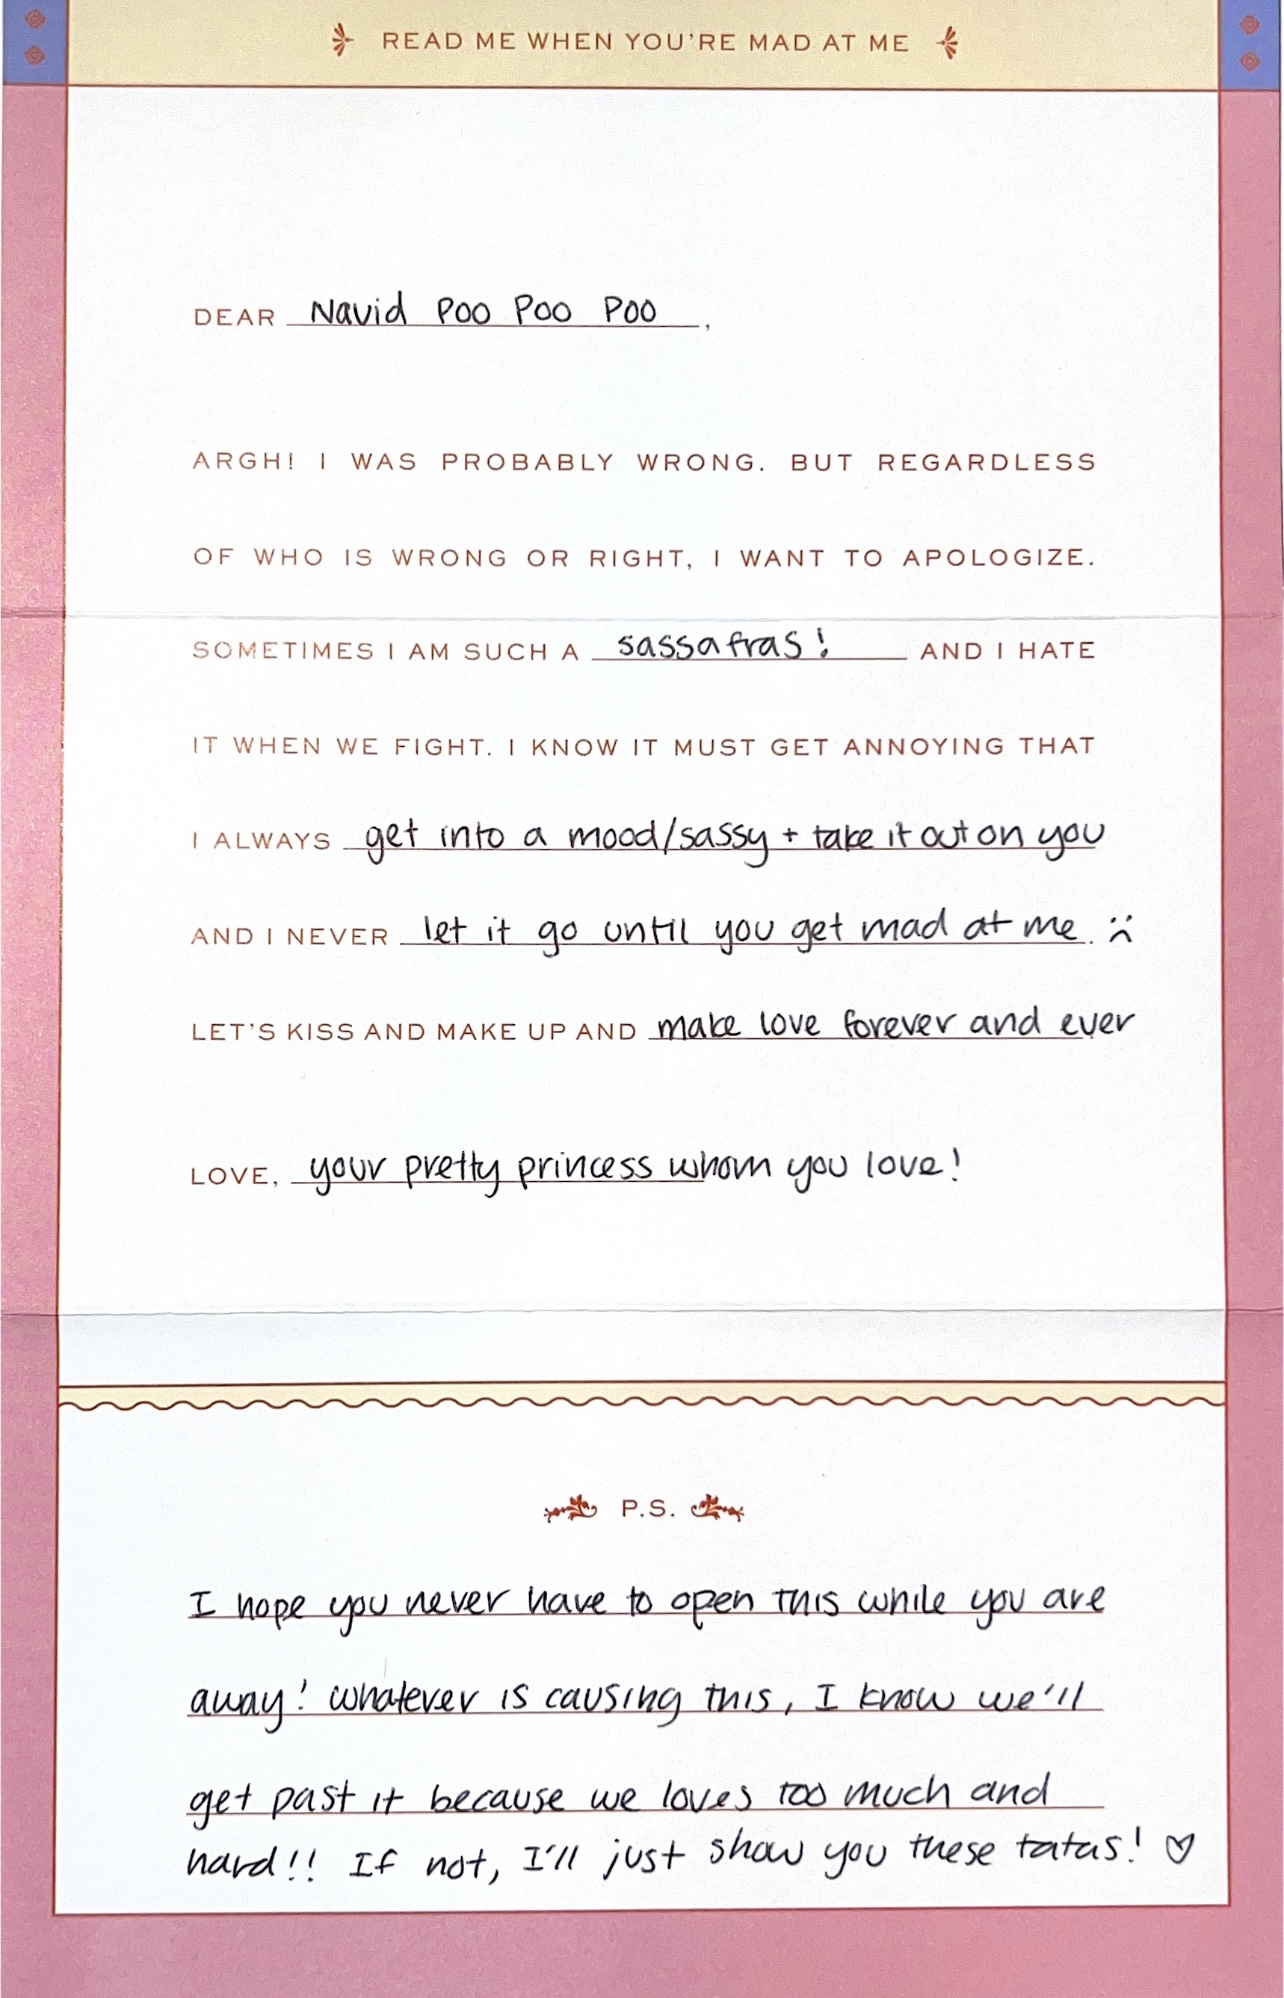 READ ME WHEN YOU'RE MAD AT ME
DEAR Navid Poo Poo Poo,
ARGH! I WAS PROBABLY WRONG. BUT REGARDLESS
OF WHO IS WRONG OR RIGHT, I WANT TO APOLOGIZE.
SOMETIMES I AM SUCH A sassafras! AND I HATE
IT WHEN WE FIGHT. I KNOW IT MUST GET ANNOYING THAT
I ALWAYS get into a mood/sassy + take it out on you
AND I NEVER let it go until you get mad at me. :(
LET'S KISS AND MAKE UP AND make love forever and ever.
LOVE, your pretty princess whom you love!
P.S.
I hope you never have to open this while you are
away! Whatever is causing this, I know we'll
get past it because we loves too much and
hard!! If not, I'll just show you these tatas! ♡